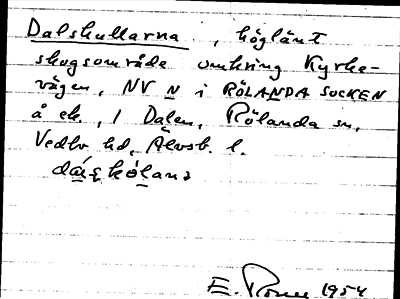 Dalskullarna, höglänt
skogsområde omkring Kyrke-
vägen, NV N i RÖLANDA SOCKEN
å ek. 1 Dalen, Rölanda sn,
Vedbo hd, Älvsb. l.
E. 1954